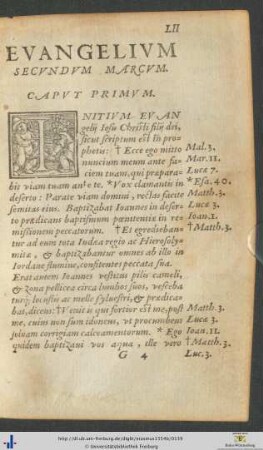 LII
EVANGELIVM
SECVNDVM MARCVM.
CAPVT PRIMVM.
NITIVM EVAN
gelij Iesu Christi filij dei,
sicut scriptum est in pro
phetis: † Ecce ego mitto Mal.3.
nuncium meum ante fa- Mar.11.
ciem tuam, qui præpara- Luce 7.
bit viam tuam ante te. *Vox clamantis in *Esa.40.
deserto: Parate viam domini, rectas facite Matth.3.
semitas eius. Baptizabat Ioannes in deser- Luce 3.
to prædicans baptismum pœnitentiæ in re- Ioan.1.
missionem peccatorum. † Et egredieban- †Matth.3.
tur ad eum tota Iudæa regio ac Hierosoly-
mitæ, & baptizabantur omnes ab illo in
Iordane flumine, confitentes peccata sua.
Erat autem Ioannes vestitus pilis cameli,
& zona pellicea circa lumbos suos, vesceba
turq; locustis ac melle sylvestri, & prædica-
bat, dicens: Venit is qui fortior est me, post Matth.3.
me, cuius non sum idoneus, vt procumbens Luce 3.
soluam corrigiam calceamentorum. * Ego Ioan.1.
quidem baptizaui vos aqua, ille vero †Matth.3.
G 4 Luc.3.
http://dl.ub.uni-freiburg.de/diglit/erasmus1554b/0133
Universitätsbibliothek Freiburg